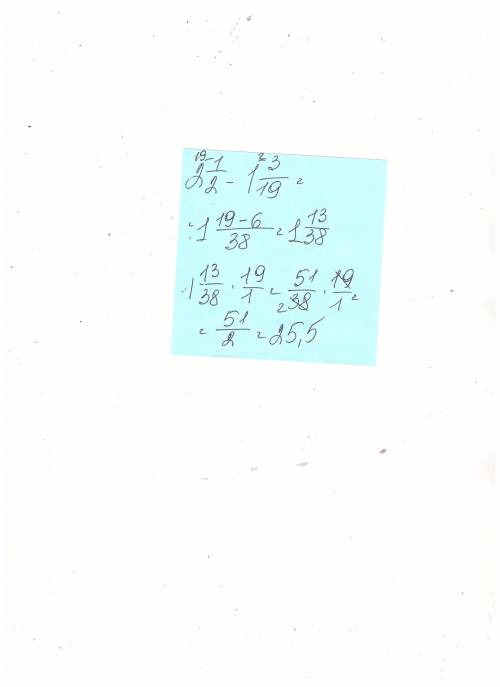 2 1/2 - 1 3/19 =
= 1 (19-6)/38 = 1 13/38
1 13/38 · 19/1 = 51/38 · 19/1 =
= 51/2 = 25,5